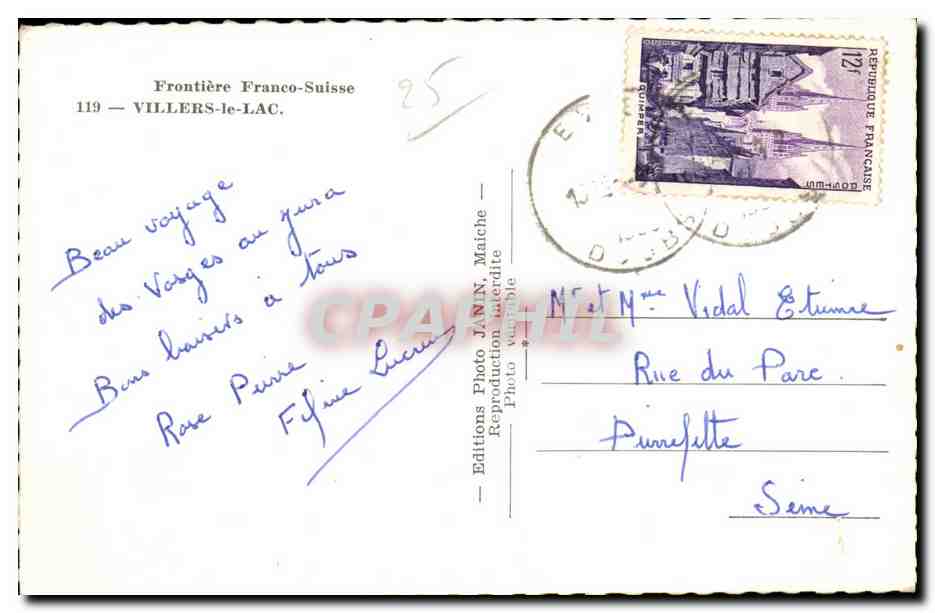 Frontière Franco-Suisse
119 — VILLERS-le-LAC.
25
Beau voyage
des Vosges au Jura
Bons baisers à tous
Rose Pierre
Fifine Lucien
— Editions Photo JANIN, Maiche —
Reproduction interdite
Photo véritable
*
12f
REPUBLIQUE FRANÇAISE
POSTES
QUIMPER
DOUBS
Mr et Mme Vidal Etienne
Rue du Parc.
Pierrefitte
Seine
CPAPHIL